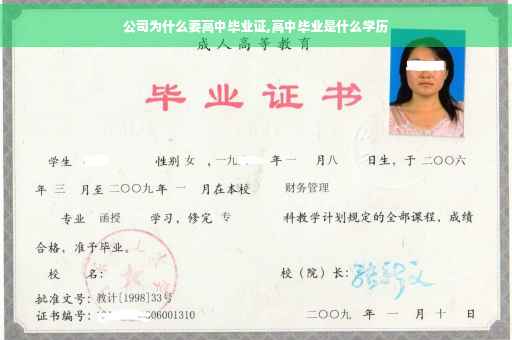 公司为什么要高中毕业证,高中毕业是什么学历
成人高等教育
毕业证书
学生 性别 女 ,一九 年 一 月 八 日生，于 二〇〇六
年 三 月至 二〇〇九 年 一 月在本校 财务管理
专业 函授 学习，修完 专 科教学计划规定的全部课程，成绩
合格，准予毕业。
校 名： 校（院）长：
批准文号：教计[1998]33号
证书编号： 06001310 二〇〇九 年 一 月 十 日